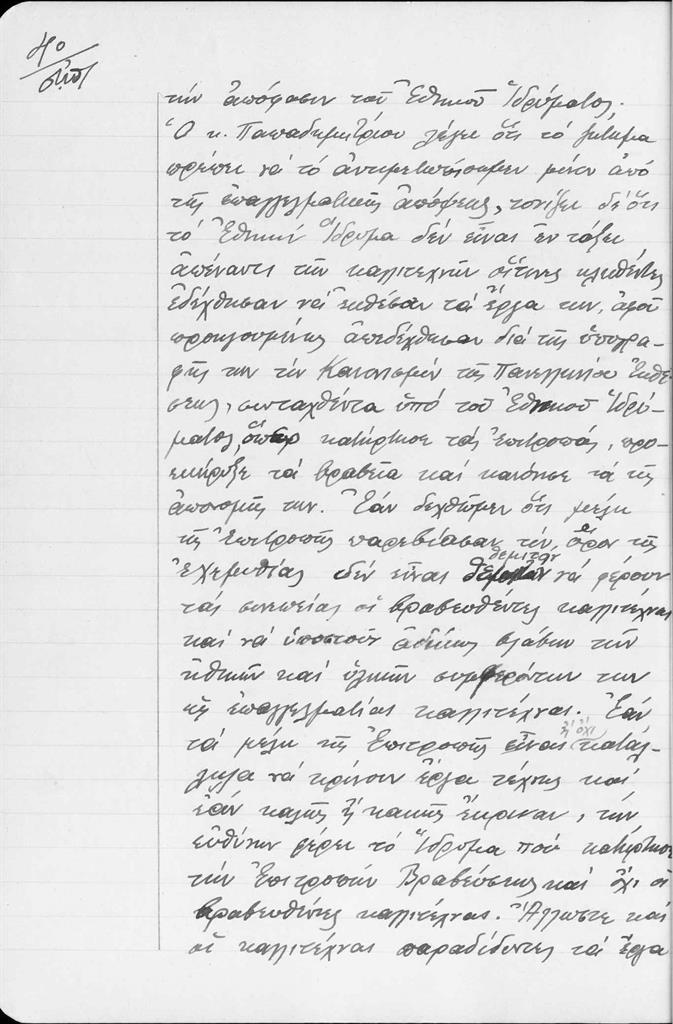 4ο
τὴν ἀπόφασιν τοῦ Ἐθνικοῦ Ἱδρύματος.
Ὁ κ. Παπαδημητρίου λέγει ὅτι τὸ ζήτημα
πρέπει νὰ τὸ ἀντιμετωπίσωμεν μόνον ἀπὸ
τῆς ἐπαγγελματικῆς ἀπόψεως, τονίζει δὲ ὅτι
τὸ Ἐθνικὸν Ἵδρυμα δὲν εἶναι ἐν τάξει
ἀπέναντι τῶν καλλιτεχνῶν οἵτινες κληθέντες
ἐδέχθησαν νὰ ἐκθέσουν τὰ ἔργα των, ἀφοῦ
προηγουμένως ἀπεδέχθησαν διὰ τῆς ὑπογρα-
φῆς των τὸν Κανονισμὸν τῆς Πανελληνίου Ἐκθέ-
σεως, συνταχθέντα ὑπὸ τοῦ Ἐθνικοῦ Ἱδρύ-
ματος, ὅπερ κατήρτισε τὰς Ἐπιτροπάς, προ-
εκήρυξε τὰ βραβεῖα καὶ κανόνισε τὰ τῆς
ἀπονομῆς των. Ἐὰν δεχθῶμεν ὅτι μέλη
τῆς Ἐπιτροπῆς παρεβίασαν τὸν ὅρον τῆς
ἐχεμυθίας δὲν εἶναι θεμιτὸν νὰ φέρουν
τὰς συνεπείας οἱ βραβευθέντες καλλιτέχναι
καὶ νὰ ὑποστοῦν ἀδίκως βλάβην τῶν
ἠθικῶν καὶ ὑλικῶν συμφερόντων των
ὡς ἐπαγγελματίαι καλλιτέχναι. Ἐὰν
τὰ μέλη τῆς Ἐπιτροπῆς εἶναι ἢ ὄχι κατάλ-
ληλα νὰ κρίνουν ἔργα τέχνης καὶ
ἐὰν καλῶς ἢ κακῶς ἔκριναν, τὴν
εὐθύνην φέρει τὸ Ἵδρυμα ποὺ κατήρτισε
τὴν Ἐπιτροπὴν Βραβεύσεως καὶ ὄχι οἱ
βραβευθέντες καλλιτέχναι. Ἄλλωστε καὶ
οἱ καλλιτέχναι παραδίδοντες τὰ ἔργα